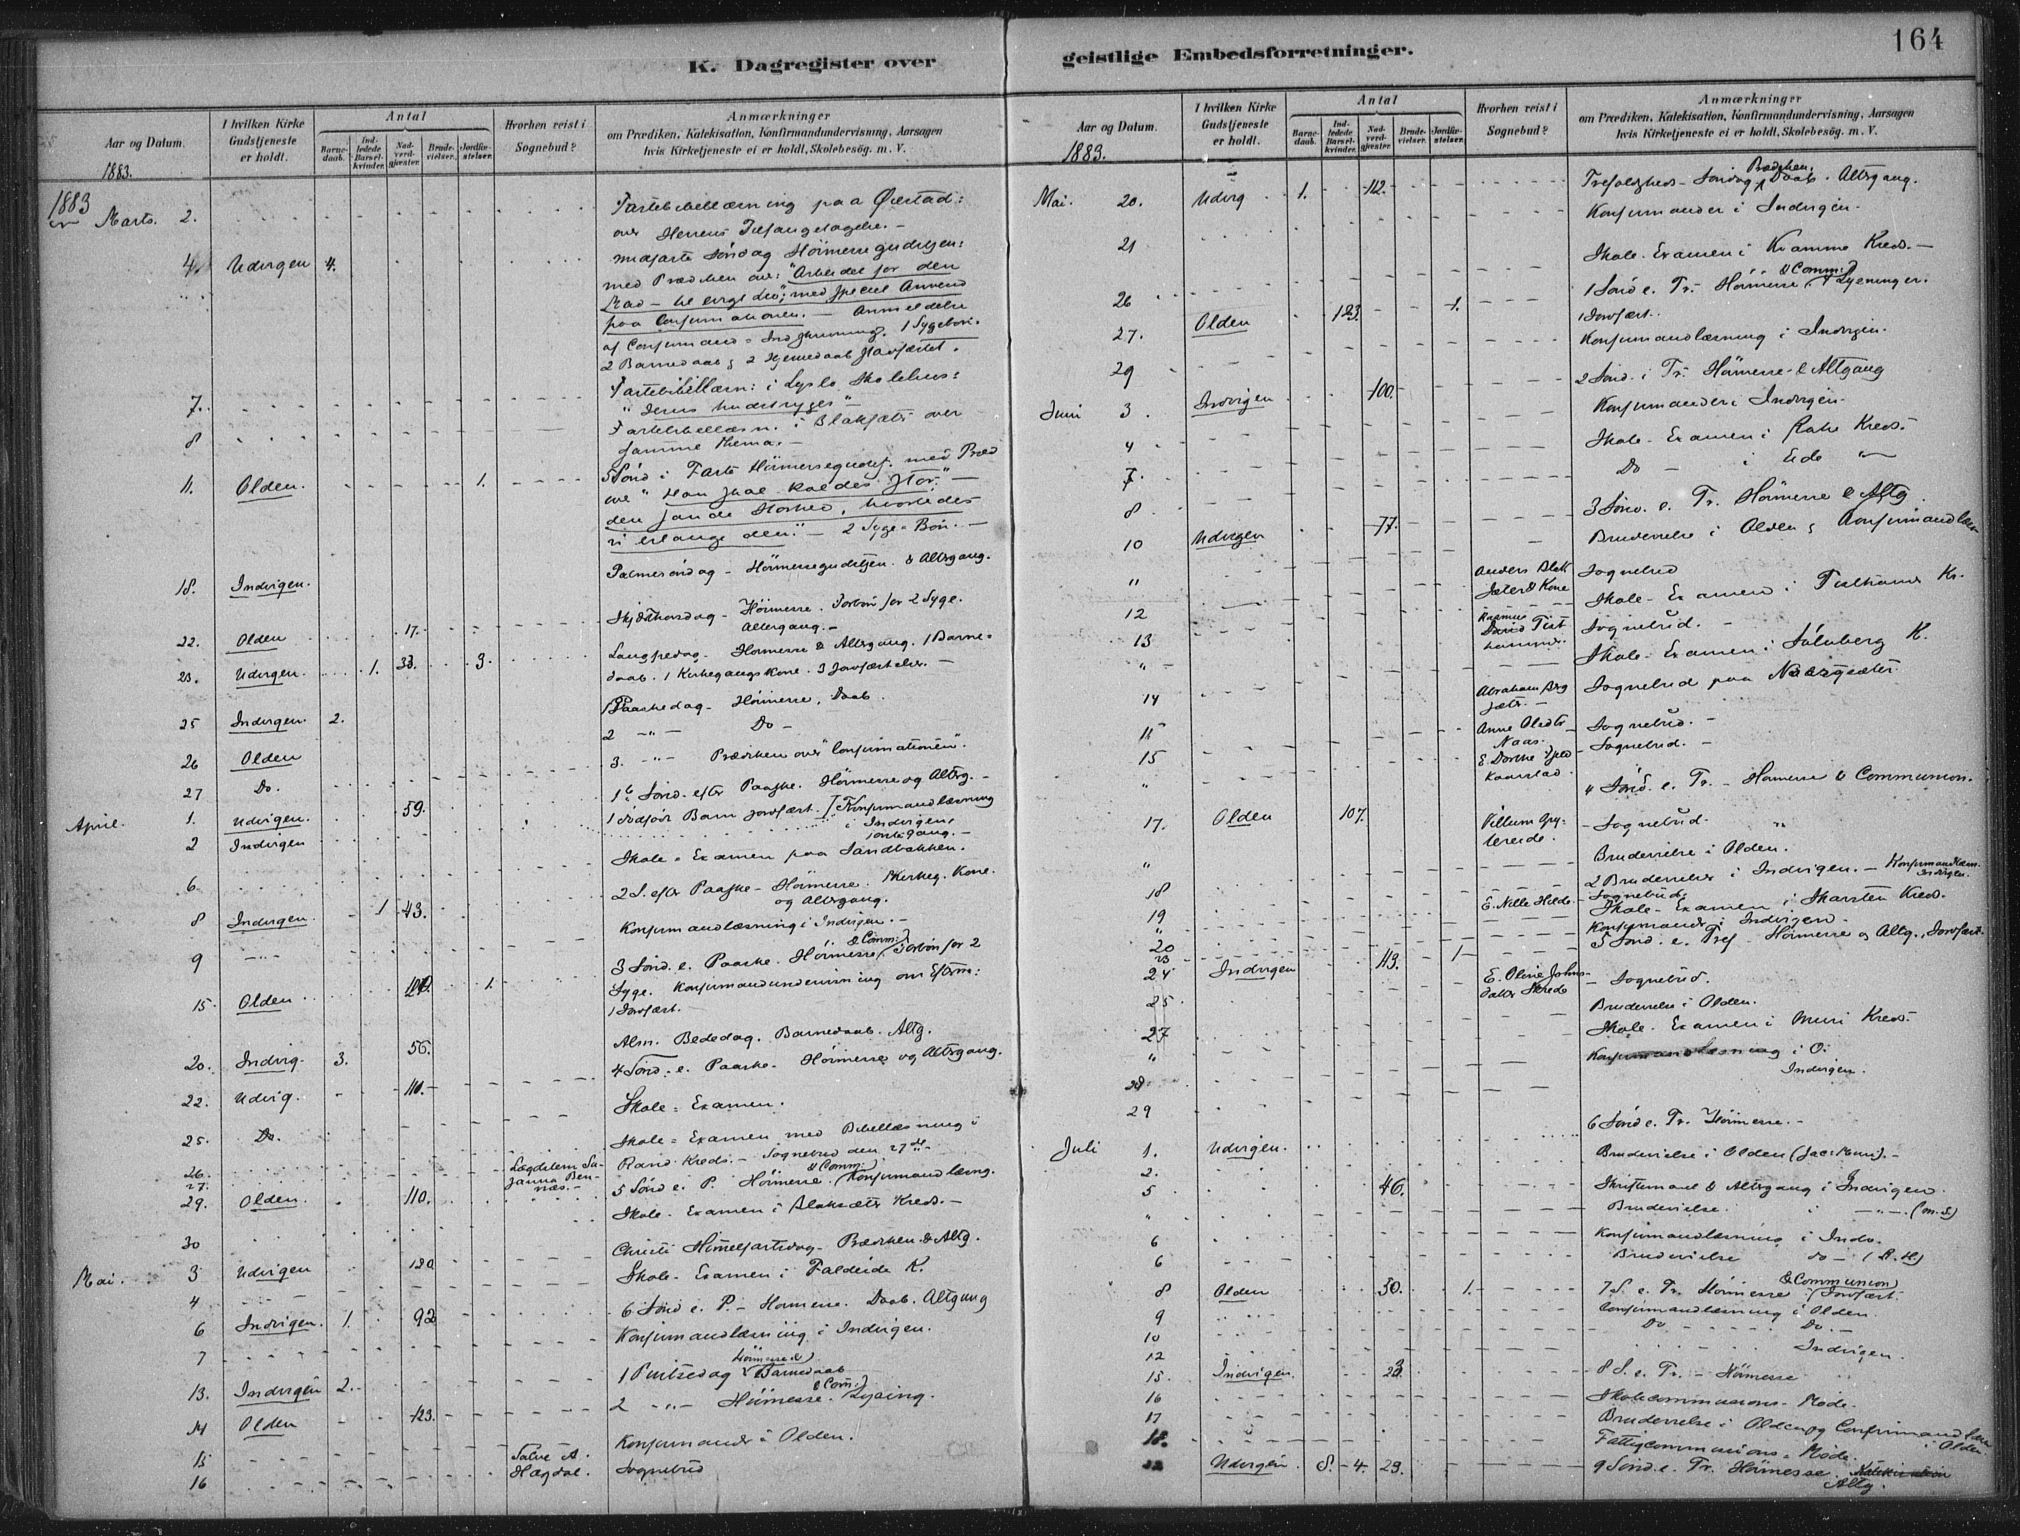 164
K. Dagregister over geistlige Embedsforretninger.
Aar og Datum.
I hvilken Kirke Gudstjeneste er holdt.
Antal
Barne-daab.
Ind-ledede Barsel-kvinder.
Nad-verd-gjæster.
Brude-vielser.
Jordfæ-stelser.
Hvorhen reist i Sognebud?
Anmærkninger
om Prædiken, Katekisation, Konfirmandundervisning, Aarsagen
hvis Kirketjeneste ei er holdt, Skolebesög. m. V.
1883.
1883
Marts. 2. Fastebibellæsning paa
over Herrens Tilfangetagelse. -
4. Udvigen 4. midfaste Søndag Höimessegudstjen:
med Prædiken over: "Arbeidet for den
Mad - til evigt Liv"; med speciel Anvend
paa Confirmationen. - Anmeldelse
af Confirmand =
2 Barnedaab & 2 Hjemmedaab
7. Fastebibellæsn: i Skolehus:
8 i Blaksæter over
samme Thema. -
11. Olden. 1. 5 Sönd i Faste Höimessegudstj. med Præd
ove "Han skal kaldes stor" -
den sande Storhed, hvorledes
vi erlange den." - 2 Syge = Bön. -
18. Indvigen. Palmesöndag - Höimessegudstjen. & Altergang.
22. Olden 17. Skjærthorsdag - Höimesse. Forbön for 2 Syge.
Altergang. -
23. Udvigen. 1. 33. 3. Langfredag - Höimesse & Altergang. 1 Barne=
daab. 1 Kirkegangskone. 3 Jordfæstelser. -
25 Indvigen. 2. 1 Paaskedag - Höimesse, Daab.
26 Olden 2 -"- Do -
27 Do. 3. -"- Prædiken over "Confirmationen".
April. 1. Udvigen. 59. 1ste Sönd. efter Paaske. Höimesse og Altrg. -
1 dødfødt Barn jordfæst. / Konfirmandlæsning
2 Indvigen i Indvigen,
6. Skole = Examen paa Sandbakken.
8 Indvigen. 1 43. 2 S. efter Paaske - Höimesse. 1 Kirkeg. Kone.
og Altergang.
9 Konfirmandlæsning i Indvigen. -
15. Olden 1. 3 Sönd. e. Paaske. Höimesse & Comm: / Forbön for 2
Syge. Konfirmandundervisning om Efterm:
1 Jordfæst. -
20. Indvig. 3. 56. Alm. Bededag. Barnedaab. Altg.
22. Udvig. 110. 4 Sönd. e. Paaske - Höimesse og Altergang.
25. Do. Skole = Examen.
26. Skole = Examen med Bibellæsning i
27. Rand Kreds. - Sognebud den 27de -
29. Olden. 110. 5 Sönd e. P. Höimesse & Comm: / Konfirmandlæsng.
30 Skole - Examen i Blaksæter Kreds. -
Mai. 3 Udvigen 120 Christi Himmelfartsdag - Prædiken & Altg.
4 Skole - Examen i Faldeide K.
6 Indvigen. 1. 92 6 Sönd e. P. - Höimesse. Daab. Altgang
7 Konfirmandlæsning i Indvigen.
13. Indvigen 2. 1 Pintsedag Höimesse & Barnedaab
14 Olden 123. 2 -"- Höimesse & Com: / Lysing.
15 Konfirmander i Olden.
16 Hægdal. Sognebud
Aar og Datum.
I hvilken Kirke Gudstjeneste er holdt.
Antal
Barne-daab.
Ind-ledede Barsel-kvinder.
Nad-verd-gjæster.
Brude-vielser.
Jordfæ-stelser.
Hvorhen reist i Sognebud?
Anmærkninger
om Prædiken, Katekisation, Konfirmandundervisning, Aarsagen
hvis Kirketjeneste ei er holdt, Skolebesög. m. V.
1883.
Mai. 20. Udvig 1. 112. Trefoldigheds - Söndag Prædiken, Daab. Altrgang.
21 Konfirmander i Indvigen.
26 Skole - Examen i Kramme Kreds. -
27. Olden 123. 1. 1 Sönd e. Tr. - Höimesse & Comm: / Lysninger.
1 Jordfæst.
29 Konfirmandlæsning i Indvigen.
Juni 3. Indvigen 100. 2 Sönd. i Tr. Höimesse & Altgang
4 Konfirmander i Indvigen.
7. Skole - Examen i Kreds.
8 Do - i Eide "-
10 Udvigen 77. 3 Sönd. e. Tr. Höimesse & Altg.
" Anders Blak Brudevielse i Olden & Konfirmandlæsn
12 Sognebud
13 Skole - Examen i Tisthamer Kr.
" Sognebud. -
14 Skole - Examen i K.
Sognebud paa
Anne Olsdtr Naas. - Sognebud. -
15 Kaarstad. - Sognebud. -
17. Olden 107. 4 Sönd. e. Tr. - Höimesse & Communion.
" Sognebud. "
18 Brudevielse i Olden.
19 2 Brudevielser i Indvigen. - Konfirmandlæsn. Indvigen.
" E. Nille Hilde - Sognebud.
20 Skole - Examen i Skarsten Kreds.
23 Konfirmander i Indvigen.
24 Indvigen 113. 1 - 5 Sönd. e. Tref - Höimesse og Altg., Jordfæst
25 E. Oline Johns - datter Skrede - Sognebud.
27 Brudevielse i Olden.
" Skole - Examen i Muri Kreds.
28 Konfirmandlæsning i O.
29 Indvigen.
Juli 1. Udvigen. 6 Sönd e. Tr. Höimesse. -
2. Brudevielse i Olden (Jac: Muri). -
5 46. Skriftemaal & Altergang i Indvigen.
" Brudevielse. i -"-
6 Konfirmandlæsning i Indv.
6 Brudevielse do -
8 Olden 30. 1. 7 S. e. Tr. Höimesse & Communion / Jordfæst.
9 Confirmandlæsning i Olden.
10 Do - Do. -
12 Indvigen.
15. Indvigen 8 S. e. Tr. - Höimesse
16 Skolecommissions - Möde.
17 Brudevielse i Olden og Confirmandlæsn i Olden
18. Fattigcommissions = Möde.
22 Udvigen 8. - 4. 23. 9 Sönd. e. Tr. Höimesse.
Altg.